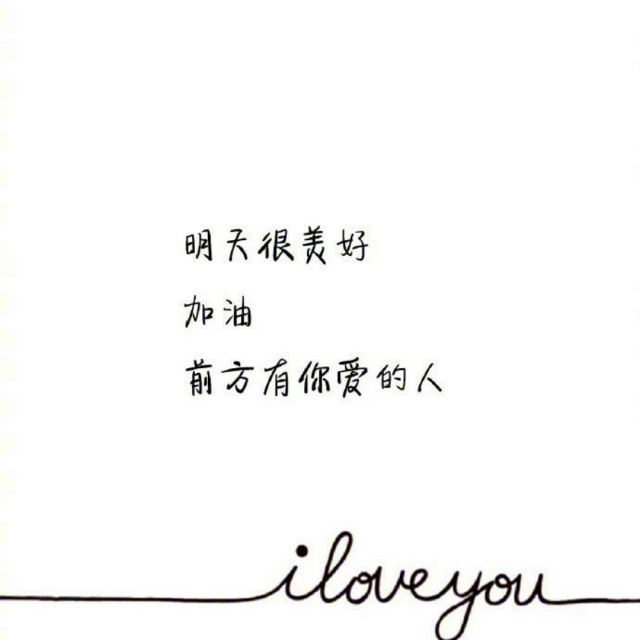 明天很美好
加油
前方有你爱的人
iloveyou